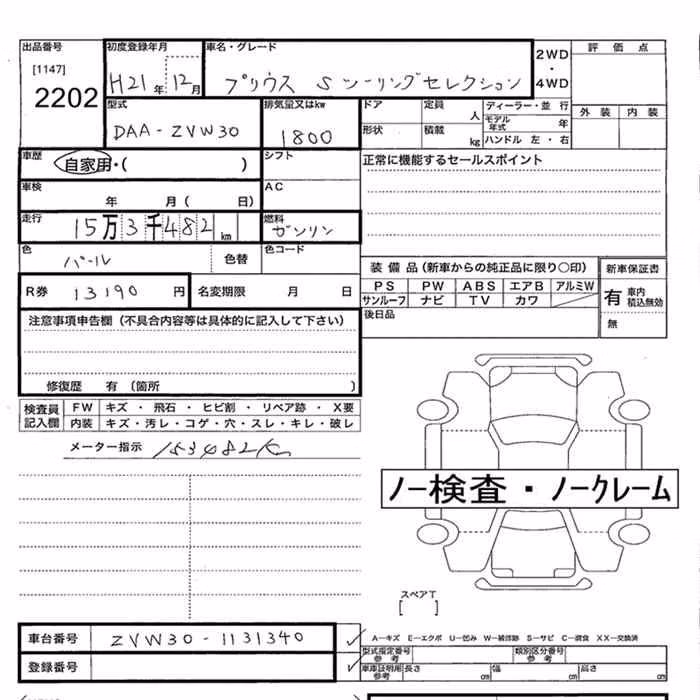 出品番号
[1147]
2202
初度登録年月
H21年12月
車名・グレード
プリウス Sツーリングセレクション
2WD
・
4WD
評価点
外装 内装
型式
DAA-ZVW30
排気量又はkw
1800
ドア 定員 人
形状 積載 kg
ディーラー・並行
モデル年式 年
ハンドル 左・右
車歴
自家用・( )
シフト
正常に機能するセールスポイント
車検
年 月( 日)
AC
走行
15万3千482km
燃料
ガソリン
色
パール
色替
色コード
装備品(新車からの純正品に限り○印)
新車保証書
PS PW ABS エアB アルミW
サンルーフ ナビ TV カワ
有 車内積込無効
無
R券 13190円
名変期限 月 日
後日品
注意事項申告欄(不具合内容等は具体的に記入して下さい)
修復歴 有(箇所 )
検査員記入欄
FW キズ・飛石・ヒビ割・リペア跡・X要
内装 キズ・汚レ・コゲ・穴・スレ・キレ・破レ
メーター指示 153482K
ノー検査・ノークレーム
スペアT
[ ]
車台番号 ZVW30-1131340
A-キズ E-エクボ U-凹み W-補修跡 S-サビ C-腐食 XX-交換済
型式指定番号 参考
類別区分番号 参考
登録番号
車庫証明用 参考 長さ cm 幅 cm 高さ cm